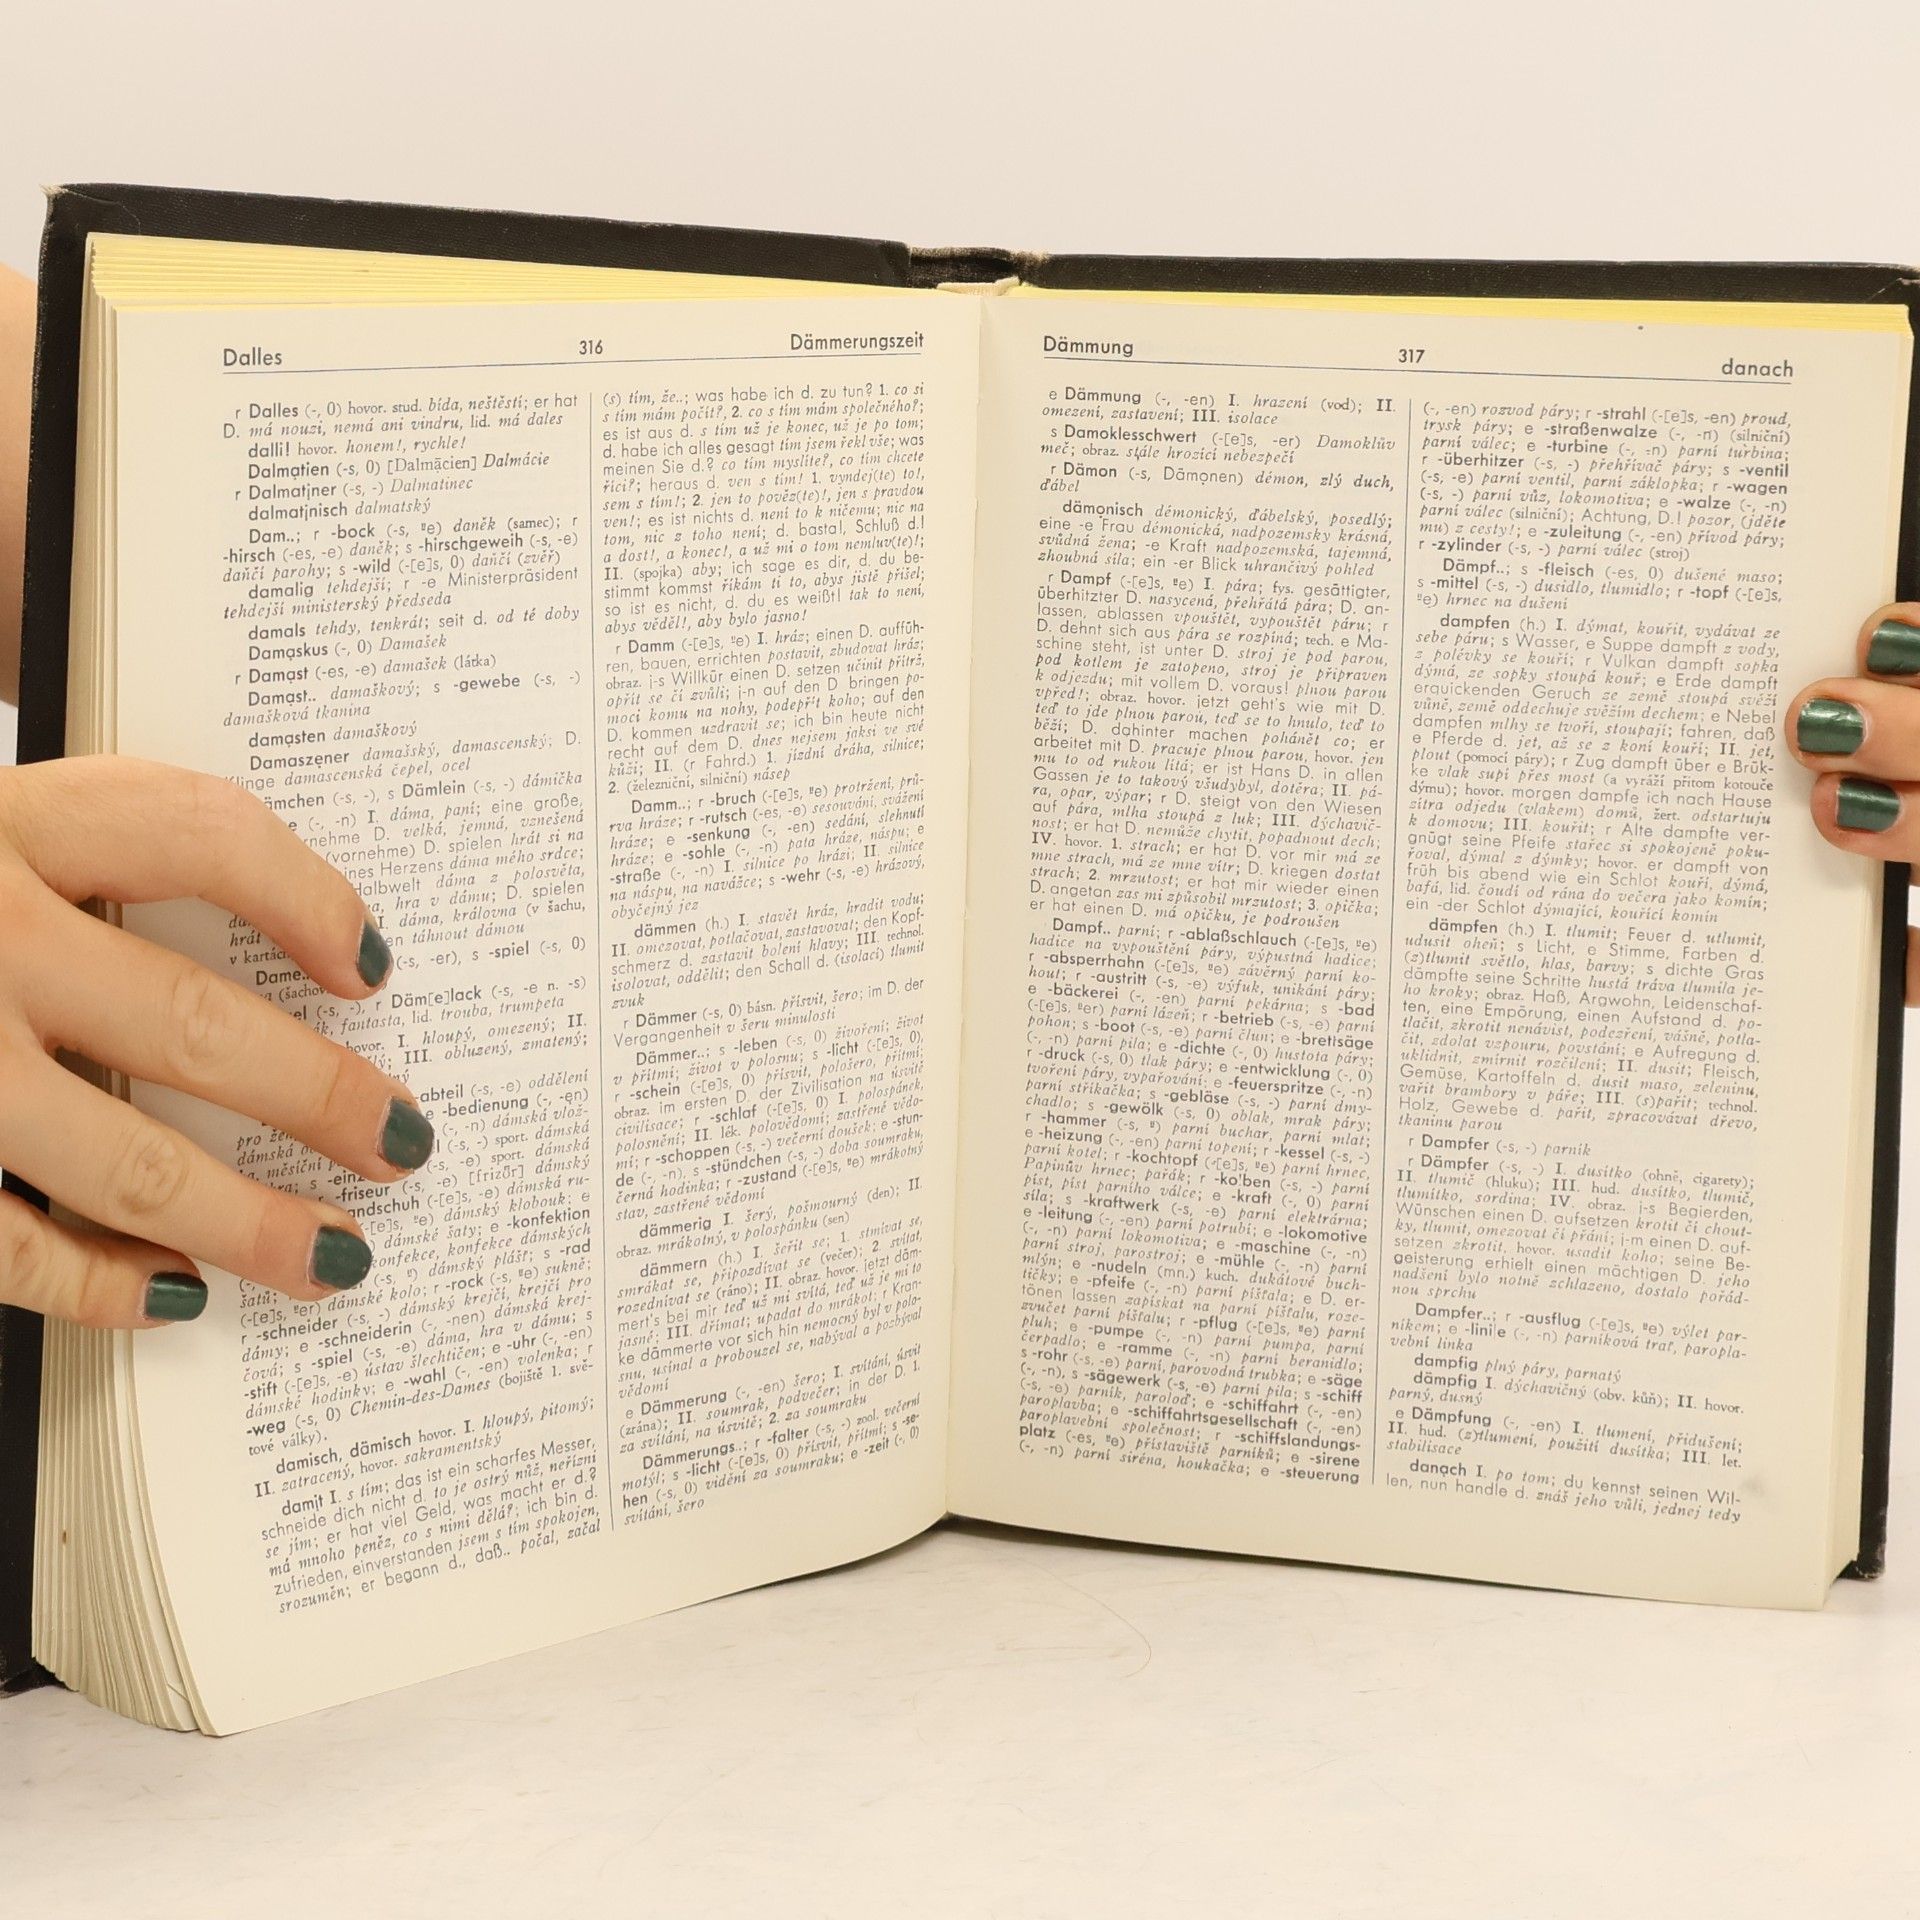 Dalles 316 Dämmerungszeit
r Dalles (-, 0) hovor. stud. bída, neštěstí; er hat
D. má nouzi, nemá ani vindru, lid. má dales
dalli! hovor. honem!, rychle!
Dalmatien (-s, 0) [Dalmācien] Dalmácie
r Dalmatiner (-s, -) Dalmatinec
dalmatinisch dalmatský
Dam..; r -bock (-s, ⸚e) daněk (samec); r
-hirsch (-es, -e) daněk; s -hirschgeweih (-s, -e)
daňčí parohy; s -wild (-[e]s, 0) daňčí (zvěř)
damalig tehdejší; r -e Ministerpräsident
tehdejší ministerský předseda
damals tehdy, tenkrát; seit d. od té doby
Damaskus (-, 0) Damašek
r Damast (-es, -e) damašek (látka)
Damast.. damaškový; s -gewebe (-s, -)
damašková tkanina
damasten damaškový
Damaszener damašský, damascenský; D.
Klinge damascenská čepel, ocel
ämchen (-s, -), s Dämlein (-s, -) dámička
e (-, -n) I. dáma, paní; eine große,
rnehme D. velká, jemná, vznešená
(vornehme) D. spielen hrát si na
ines Herzens dáma mého srdce;
Halbwelt dáma z polosvěta,
hra v dámu; D. spielen
I. dáma, královna (v šachu,
hrát en táhnout dámou
v kartách (-s, -er), s -spiel (-s, 0)
Dame..
(šachov
-s, -), r Däm[e]lack (-s, -e n. -s)
fantasta, lid. trouba, trumpeta
hovor. I. hloupý, omezený; II.
III. obluzený, zmatený;
-abteil (-s, -e) oddělení
e -bedienung (-, -en)
(-, -n) dámská vlož-
(-s, -) sport. dámská
měsíční (-s, -e) sport. dámská
s -einz
-friseur (-s, -e) [frizőr] dámský
andschuh (-[e]s, -e) dámská ru-
-[e]s, ⸚e) dámský klobouk; e
dámské šaty; e -konfektion
konfekce, konfekce dámských
šatů; (-s, ⸚) dámský plášť; s -rad
(-[e]s, ⸚er) dámské kolo; r -rock (-s, ⸚e) sukně;
r -schneider (-s, -) dámský krejčí, krejčí pro
dámy; e -schneiderin (-, -nen) dámská krej-
čová; s -spiel (-s, -e) dáma, hra v dámu; s
-stift (-[e]s, -e) ústav šlechtičen; e -uhr (-, -en)
dámské hodinky; e -wahl (-, -en) volenka; r
-weg (-s, 0) Chemin-des-Dames (bojiště 1. svě-
tové války).
damisch, dämisch hovor. I. hloupý, pitomý;
II. zatracený, hovor. sakramentský
damit I. s tím; das ist ein scharfes Messer,
schneide dich nicht d. to je ostrý nůž, neřízni
se jím; er hat viel Geld, was macht er d.?
má mnoho peněz, co s nimi dělá?; ich bin d.
zufrieden, einverstanden jsem s tím spokojen,
srozuměn; er begann d., daß.. počal, začal
(s) tím, že..; was habe ich d. zu tun? 1. co si
s tím mám počít?, 2. co s tím mám společného?;
es ist aus d. s tím už je konec, už je po tom;
d. habe ich alles gesagt tím jsem řekl vše; was
meinen Sie d.? co tím myslíte?, co tím chcete
říci?; heraus d. ven s tím! 1. vyndej(te) to!,
sem s tím!; 2. jen to pověz(te)!, jen s pravdou
ven!; es ist nichts d. není to k ničemu; nic na
tom, nic z toho není; d. basta!, Schluß d.!
a dost!, a konec!, a už mi o tom nemluv(te)!;
II. (spojka) aby; ich sage es dir, d. du be-
stimmt kommst říkám ti to, abys jistě přišel;
so ist es nicht, d. du es weißt! tak to není,
abys věděl!, aby bylo jasno!
r Damm (-[e]s, ⸚e) I. hráz; einen D. auffüh-
ren, bauen, errichten postavit, zbudovat hráz;
obraz. j-s Willkür einen D. setzen učinit přítrž,
opřít se čí zvůli; j-n auf den D bringen po-
moci komu na nohy, podepřít koho; auf den
D. kommen uzdravit se; ich bin heute nicht
recht auf dem D. dnes nejsem jaksi ve své
kůži; II. (r Fahrd.) 1. jízdní dráha, silnice;
2. (železniční, silniční) násep
Damm..; r -bruch (-[e]s, ⸚e) protržení, prů-
rva hráze; r -rutsch (-es, -e) sesouvání, svážení
hráze; e -senkung (-, -en) sedání, slehnutí
hráze; e -sohle (-, -n) pata hráze, náspu; e
-straße (-, -n) I. silnice po hrázi; II. silnice
na náspu, na navážce; s -wehr (-s, -e) hrázový,
obyčejný jez
dämmen (h.) I. stavět hráz, hradit vodu;
II. omezovat, potlačovat, zastavovat; den Kopf-
schmerz d. zastavit bolení hlavy; III. technol.
isolovat, oddělit; den Schall d. (isolací) tlumit
zvuk
r Dämmer (-s, 0) básn. přísvit, šero; im D. der
Vergangenheit v šeru minulosti
Dämmer..; s -leben (-s, 0) živoření; život
v přítmí; život v polosnu; s -licht (-[e]s, 0),
r -schein (-[e]s, 0) přísvit, pološero, přítmí;
obraz. im ersten D. der Zivilisation na úsvitě
civilisace; r -schlaf (-[e]s, 0) I. polospánek,
polosnění; II. lék. polovědomí; zastřené vědo-
mí; r -schoppen (-s, -) večerní doušek; e -stun-
de (-, -n), s -stündchen (-s, -) doba soumraku,
černá hodinka; r -zustand (-[e]s, ⸚e) mrákotný
stav, zastřené vědomí
dämmerig I. šerý, pošmourný (den); II.
obraz. mrákotný, v polospánku (sen)
dämmern (h.) I. šeřit se; 1. stmívat se,
smrákat se, připozdívat se (večer); 2. svítat,
rozednívat se (ráno); II. obraz. hovor. jetzt däm-
mert's bei mir teď už mi svítá, teď už je mi to
jasné; III. dřímat; upadat do mrákot; r Kran-
ke dämmerte vor sich hin nemocný byl v polo-
snu, usínal a probouzel se, nabýval a pozbýval
vědomí
e Dämmerung (-, -en) šero; I. svítání, úsvit
(zrána); II. soumrak, podvečer; in der D. 1.
za svítání, na úsvitě; 2. za soumraku
Dämmerungs..; r -falter (-s, -) zool. večerní
motýl; s -licht (-[e]s, 0) přísvit, přítmí; s -se-
hen (-s, 0) vidění za soumraku; e -zeit (-, 0)
svítání, šero
Dämmung 317 danach
e Dämmung (-, -en) I. hrazení (vod); II.
omezení, zastavení; III. isolace
s Damoklesschwert (-[e]s, -er) Damoklův
meč; obraz. stále hrozící nebezpečí
r Dämon (-s, Dämonen) démon, zlý duch,
ďábel
dämonisch démonický, ďábelský, posedlý;
eine -e Frau démonická, nadpozemsky krásná,
svůdná žena; -e Kraft nadpozemská, tajemná,
zhoubná síla; ein -er Blick uhrančivý pohled
r Dampf (-[e]s, ⸚e) I. pára; fys. gesättigter,
überhitzter D. nasycená, přehřátá pára; D. an-
lassen, ablassen vpouštět, vypouštět páru; r
D. dehnt sich aus pára se rozpíná; tech. e Ma-
schine steht, ist unter D. stroj je pod parou,
pod kotlem je zatopeno, stroj je připraven
k odjezdu; mit vollem D. voraus! plnou parou
vpřed!; obraz. hovor. jetzt geht's wie mit D.
teď to jde plnou parou, teď se to hnulo, teď to
běží; D. dahinter machen pohánět co; er
arbeitet mit D. pracuje plnou parou, hovor. jen
mu to od rukou lítá; er ist Hans D. in allen
Gassen je to takový všudybyl, dotěra; II. pá-
ra, opar, výpar; r D. steigt von den Wiesen
auf pára, mlha stoupá z luk; III. dýchavič-
nost; er hat D. nemůže chytit, popadnout dech;
IV. hovor. 1. strach; er hat D. vor mir má ze
mne strach, má ze mne vítr; D. kriegen dostat
strach; 2. mrzutost; er hat mir wieder einen
D. angetan zas mi způsobil mrzutost; 3. opička;
er hat einen D. má opičku, je podroušen
Dampf.. parní; r -ablaßschlauch (-[e]s, ⸚e)
hadice na vypouštění páry, výpustná hadice;
r -absperrhahn (-[e]s, ⸚e) závěrný parní ko-
hout; r -austritt (-s, -e) výfuk, unikání páry;
e -bäckerei (-, -en) parní pekárna; s -bad
(-[e]s, ⸚er) parní lázeň; r -betrieb (-s, -e) parní
pohon; s -boot (-s, -e) parní člun; e -brettsäge
(-, -n) parní pila; e -dichte (-, 0) hustota páry;
r -druck (-s, 0) tlak páry; e -entwicklung (-, 0)
tvoření páry, vypařování; e -feuerspritze (-, -n)
parní stříkačka; s -gebläse (-s, -) parní dmy-
chadlo; s -gewölk (-s, 0) oblak, mrak páry;
r -hammer (-s, ⸚) parní buchar, parní mlat;
e -heizung (-, -en) parní topení; r -kessel (-s, -)
parní kotel; r -kochtopf (-[e]s, ⸚e) parní hrnec,
Papinův hrnec; pařák; r -ko'ben (-s, -) parní
píst, píst parního válce; e -kraft (-, 0) parní
síla; s -kraftwerk (-s, -e) parní elektrárna;
e -leitung (-, -en) parní potrubí; e -lokomotive
(-, -n) parní lokomotiva; e -maschine (-, -n)
parní stroj, parostroj; e -mühle (-, -n) parní
mlýn; e -nudeln (mn.) kuch. dukátové buch-
tičky; e -pfeife (-, -n) parní píšťala; e D. er-
tönen lassen zapískat na parní píšťalu, roze-
zvučet parní píšťalu; r -pflug (-[e]s, ⸚e) parní
pluh; e -pumpe (-, -n) parní pumpa, parní
čerpadlo; e -ramme (-, -n) parní beranidlo;
s -rohr (-s, -e) parní, parovodná trubka; e -säge
(-, -n), s -sägewerk (-s, -e) parní pila; s -schiff
(-s, -e) parník, paroloď; e -schiffahrt (-, -en)
paroplavba; e -schiffahrtsgesellschaft (-, -en)
paroplavební společnost; r -schiffslandungs-
platz (-es, ⸚e) přístaviště parníků; e -sirene
(-, -n) parní siréna, houkačka; e -steuerung
(-, -en) rozvod páry; r -strahl (-[e]s, -en) proud,
trysk páry; e -straßenwalze (-, -n) (silniční)
parní válec; e -turbine (-, -n) parní turbina;
r -überhitzer (-s, -) přehřívač páry; s -ventil
(-s, -e) parní ventil, parní záklopka; r -wagen
(-s, -) parní vůz, lokomotiva; e -walze (-, -n)
parní válec (silniční); Achtung, D.! pozor, (jděte
mu) z cesty!; e -zuleitung (-, -en) přívod páry;
r -zylinder (-s, -) parní válec (stroj)
Dämpf..; s -fleisch (-es, 0) dušené maso;
s -mittel (-s, -) dusidlo, tlumidlo; r -topf (-[e]s,
⸚e) hrnec na dušení
dampfen (h.) I. dýmat, kouřit, vydávat ze
sebe páru; s Wasser, e Suppe dampft z vody,
z polévky se kouří; r Vulkan dampft sopka
dýmá, ze sopky stoupá kouř; e Erde dampft
erquickenden Geruch ze země stoupá svěží
vůně, země oddechuje svěžím dechem; e Nebel
dampfen mlhy se tvoří, stoupají; fahren, daß
e Pferde d. jet, až se z koní kouří; II. jet,
plout (pomocí páry); r Zug dampft über e Brük-
ke vlak supí přes most (a vyráží přitom kotouče
dýmu); hovor. morgen dampfe ich nach Hause
zítra odjedu (vlakem) domů, žert. odstartuju
k domovu; III. kouřit; r Alte dampfte ver-
gnügt seine Pfeife stařec si spokojeně poku-
řoval, dýmal z dýmky; hovor. er dampft von
früh bis abend wie ein Schlot kouří, dýmá,
bafá, lid. čoudí od rána do večera jako komín;
ein -der Schlot dýmající, kouřící komín
dämpfen (h.) I. tlumit; Feuer d. utlumit,
udusit oheň; s Licht, e Stimme, Farben d.
(z)tlumit světlo, hlas, barvy; s dichte Gras
dämpfte seine Schritte hustá tráva tlumila je-
ho kroky; obraz. Haß, Argwohn, Leidenschaf-
ten, eine Empörung, einen Aufstand d. po-
tlačit, zkrotit nenávist, podezření, vášně, potla-
čit, zdolat vzpouru, povstání; e Aufregung d.
uklidnit, zmírnit rozčilení; II. dusit; Fleisch,
Gemüse, Kartoffeln d. dusit maso, zeleninu,
vařit brambory v páře; III. (s)pařit; technol.
Holz, Gewebe d. pařit, zpracovávat dřevo,
tkaninu parou
r Dampfer (-s, -) parník
r Dämpfer (-s, -) I. dusítko (ohně, cigarety);
II. tlumič (hluku); III. hud. dusítko, tlumič,
tlumítko, sordina; IV. obraz. j-s Begierden,
Wünschen einen D. aufsetzen krotit čí chout-
ky, tlumit, omezovat čí přání; j-m einen D. auf-
setzen zkrotit, hovor. usadit koho; seine Be-
geisterung erhielt einen mächtigen D. jeho
nadšení bylo notně zchlazeno, dostalo pořád-
nou sprchu
Dampfer..; r -ausflug (-[e]s, ⸚e) výlet par-
níkem; e -linie (-, -n) parníková trať, paropla-
vební linka
dampfig plný páry, parnatý
dämpfig I. dýchavičný (obv. kůň); II. hovor.
parný, dusný
e Dämpfung (-, -en) I. tlumení, přidušení;
II. hud. (z)tlumení, použití dusítka; III. let.
stabilisace
danach I. po tom; du kennst seinen Wil-
len, nun handle d. znáš jeho vůli, jednej tedy